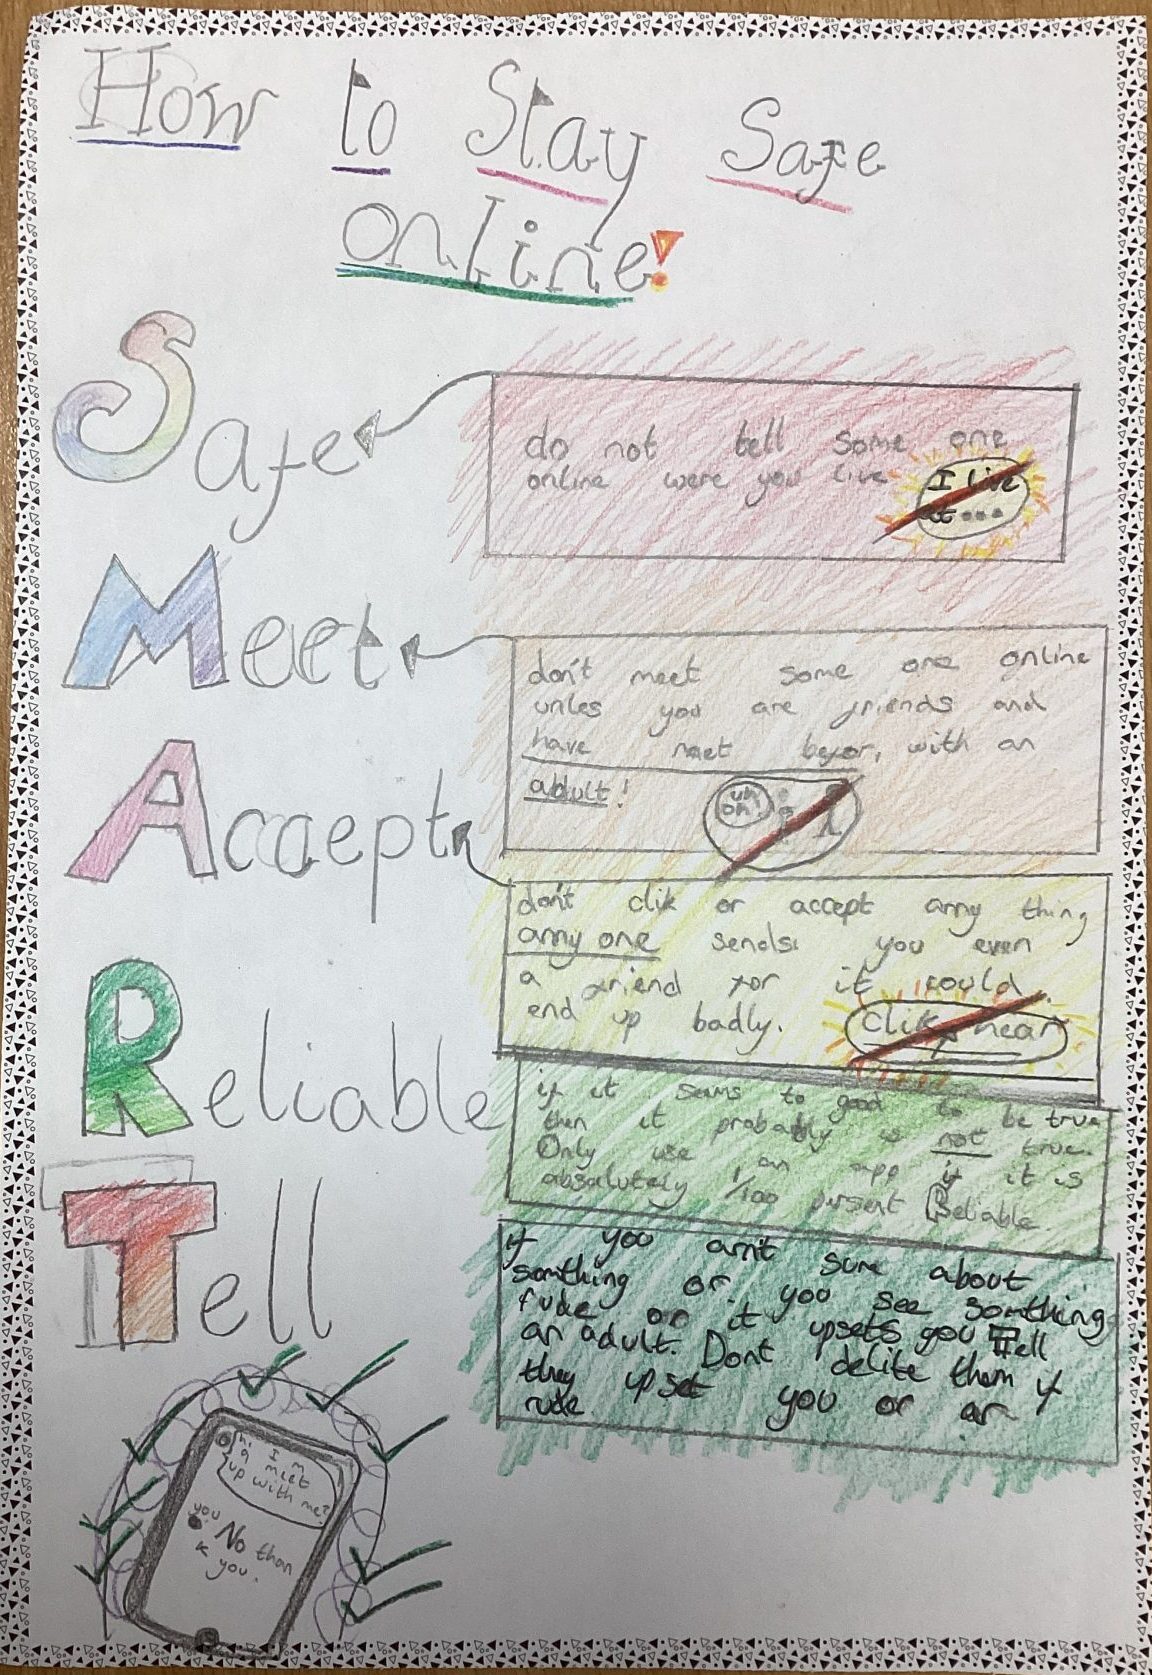 How to Stay Safe
online!
Safe
do not tell some one
online were you live
I live
at...
Meet
don't meet some one online
unles you are friends and
have meet befor, with an
adult!
uh
oh!
Accept
don't clik or accept anny thing
anny one sends you even
a friend for it could
end up badly.
clik hear
Reliable
if it seams to good to be true
then it probably is not true.
Only use an app if it is
absalutely 1/100 pursent Reliable.
Tell
if you arn't sure about
somthing or you see somthing
rude or it upsets you Tell
an adult. Dont delite them if
they upset you or ar
rude
hi I m
9 meet
up with me?
you
No than
k you.